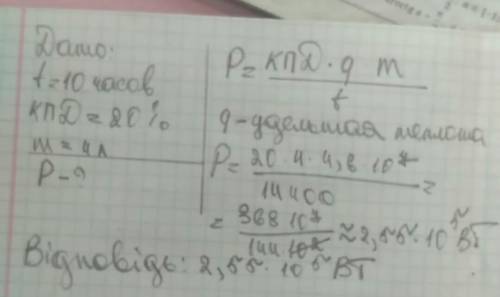 Дато:
t = 10 часов
КПД = 20%
m = 4л
P - ?
P = КПД · q m / t
q - удельная теплота
P = 20 · 4 · 4,6 · 10⁷ / 14400 =
= 368 · 10⁷ / 144 · 10² ≈ 2,55 · 10⁵ Вт
Відповідь: 2,55 · 10⁵ Вт